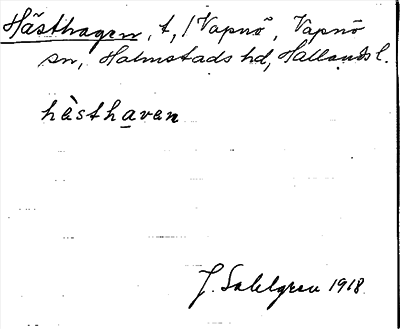 Hästhagen, t, / Vapnö, Vapnö
sn, Halmstads hd, Hallands l.
hàsthavan
J. Sahlgren 1918